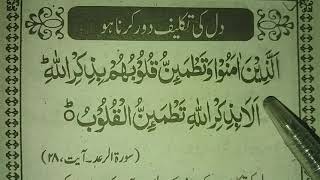 دل کی تکلیف دور کرنا ہو
اَلَّذِیْنَ اٰمَنُوْا وَتَطْمَئِنُّ قُلُوْبُهُمْ بِذِكْرِ اللهِ ط
اَلَا بِذِكْرِ اللهِ تَطْمَئِنُّ الْقُلُوْبُ ○
(سورۃ الرعد۔ آیت، ۲۸)